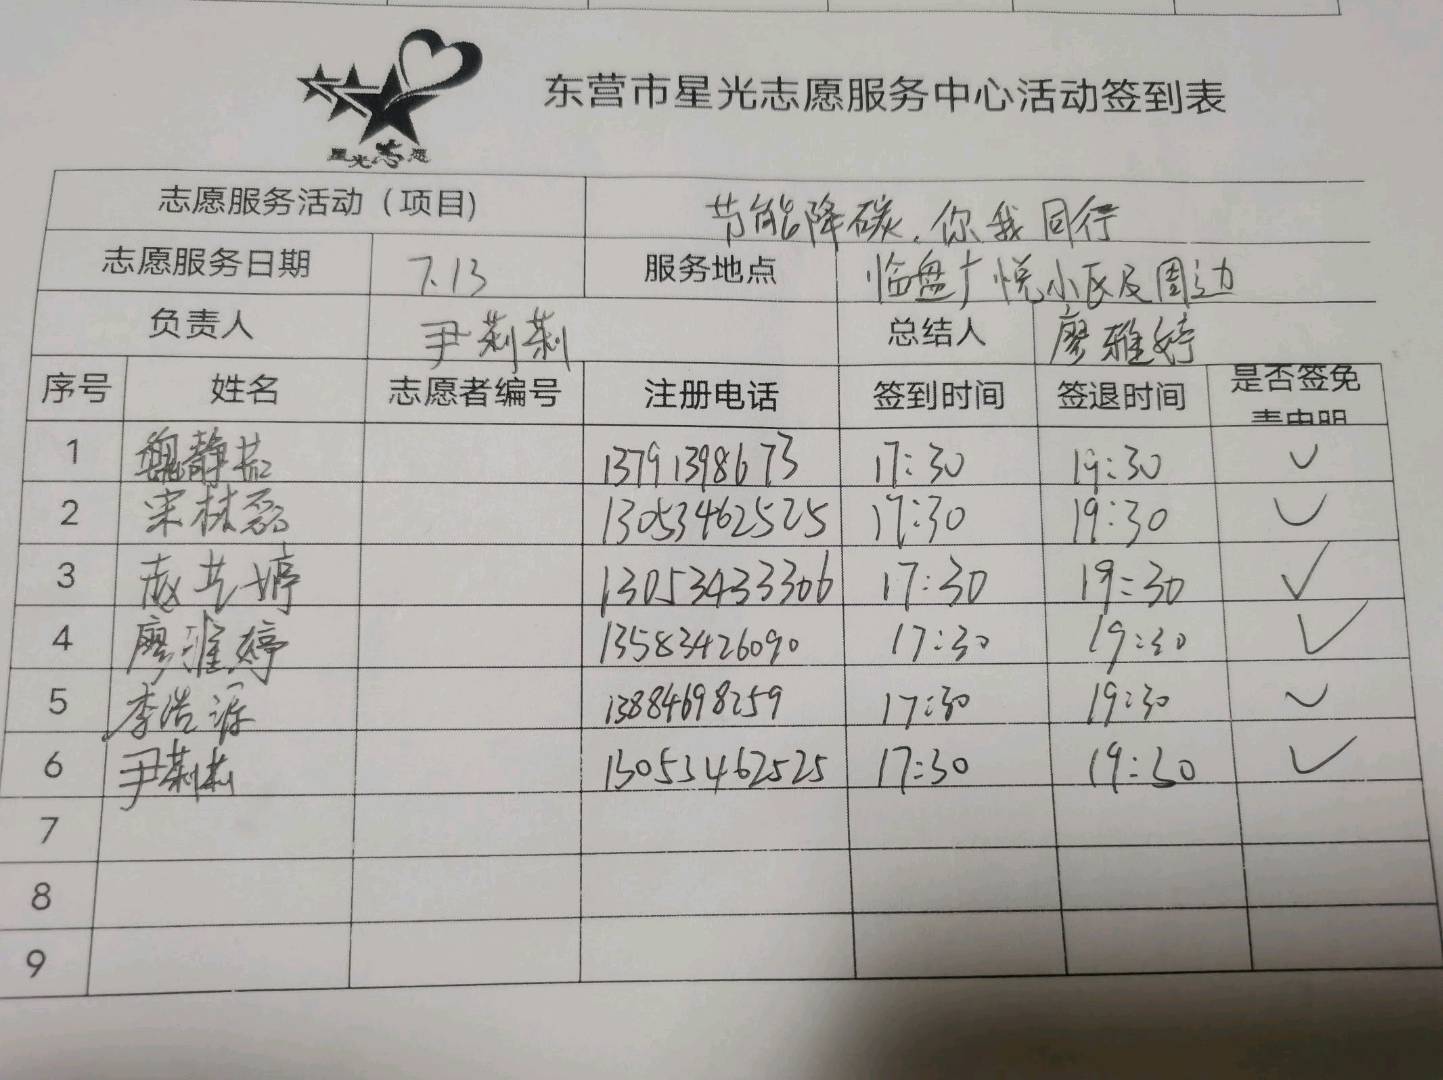 星光志愿
东营市星光志愿服务中心活动签到表
志愿服务活动（项目) 节能降碳，你我同行
志愿服务日期 7.13 服务地点 临盘广悦小区及周边
负责人 尹莉莉 总结人 廖雅婷
序号 姓名 志愿者编号 注册电话 签到时间 签退时间 是否签免责申明
1 魏静茹 13791398673 17:30 19:30 ✓
2 宋林磊 13053462525 17:30 19:30 ✓
3 赵艺婷 13053433306 17:30 19:30 ✓
4 廖雅婷 13583426090 17:30 19:30 ✓
5 李浩源 13884698259 17:30 19:30 ✓
6 尹莉莉 13053462525 17:30 19:30 ✓
7
8
9